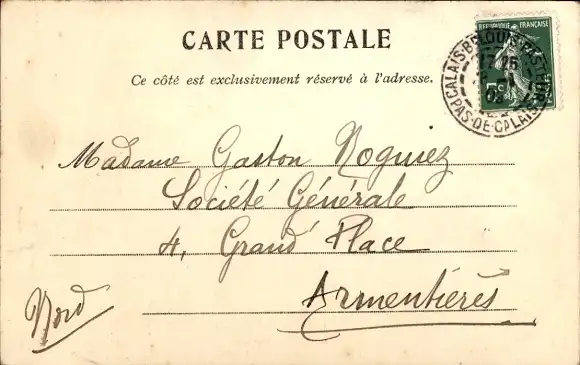 CARTE POSTALE
Ce côté est exclusivement réservé à l'adresse.
RÉPUBLIQUE FRANÇAISE
CALAIS-BD LOUIS PASTEUR
17 25
PAS-DE-CALAIS
Madame Gaston
Société Générale
4, Grand' Place
Armentières
Nord